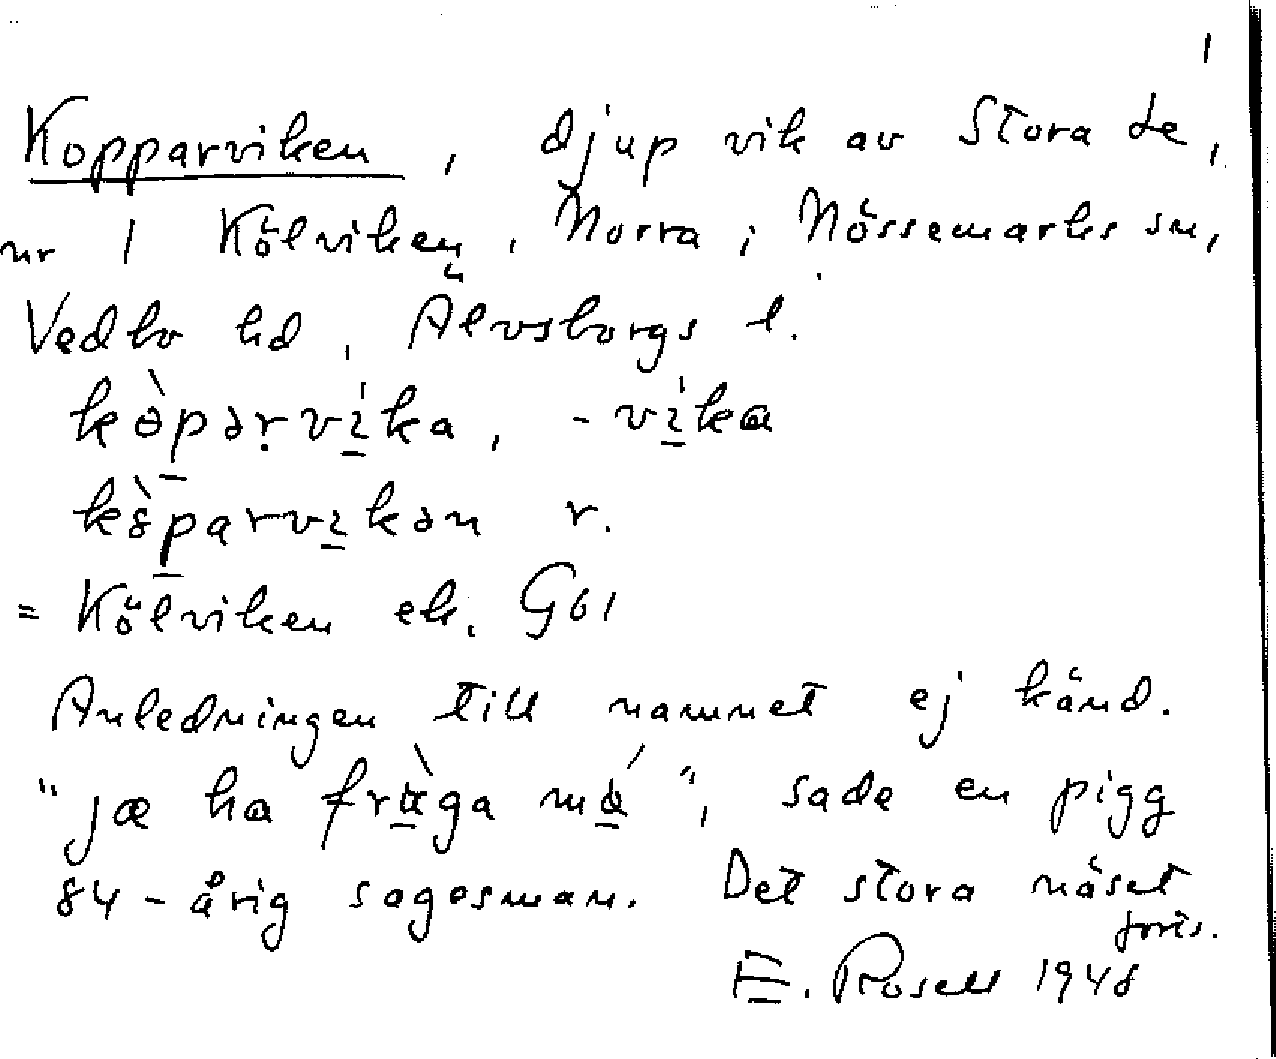 1
Kopparviken, djup vik av Stora Le,
nr 1 Kölviken, Norra, Nössemarks sn,
Vedbo hd, Älvsborgs l.
kɵ̀pərvíka, -víka
parvikən r.
= Kölviken ek. G61
Anledningen till namnet ej känd.
"jæ ha fråga må", sade en pigg
84-årig sagesman. Det stora näset
forts.
E. Rosell 1948